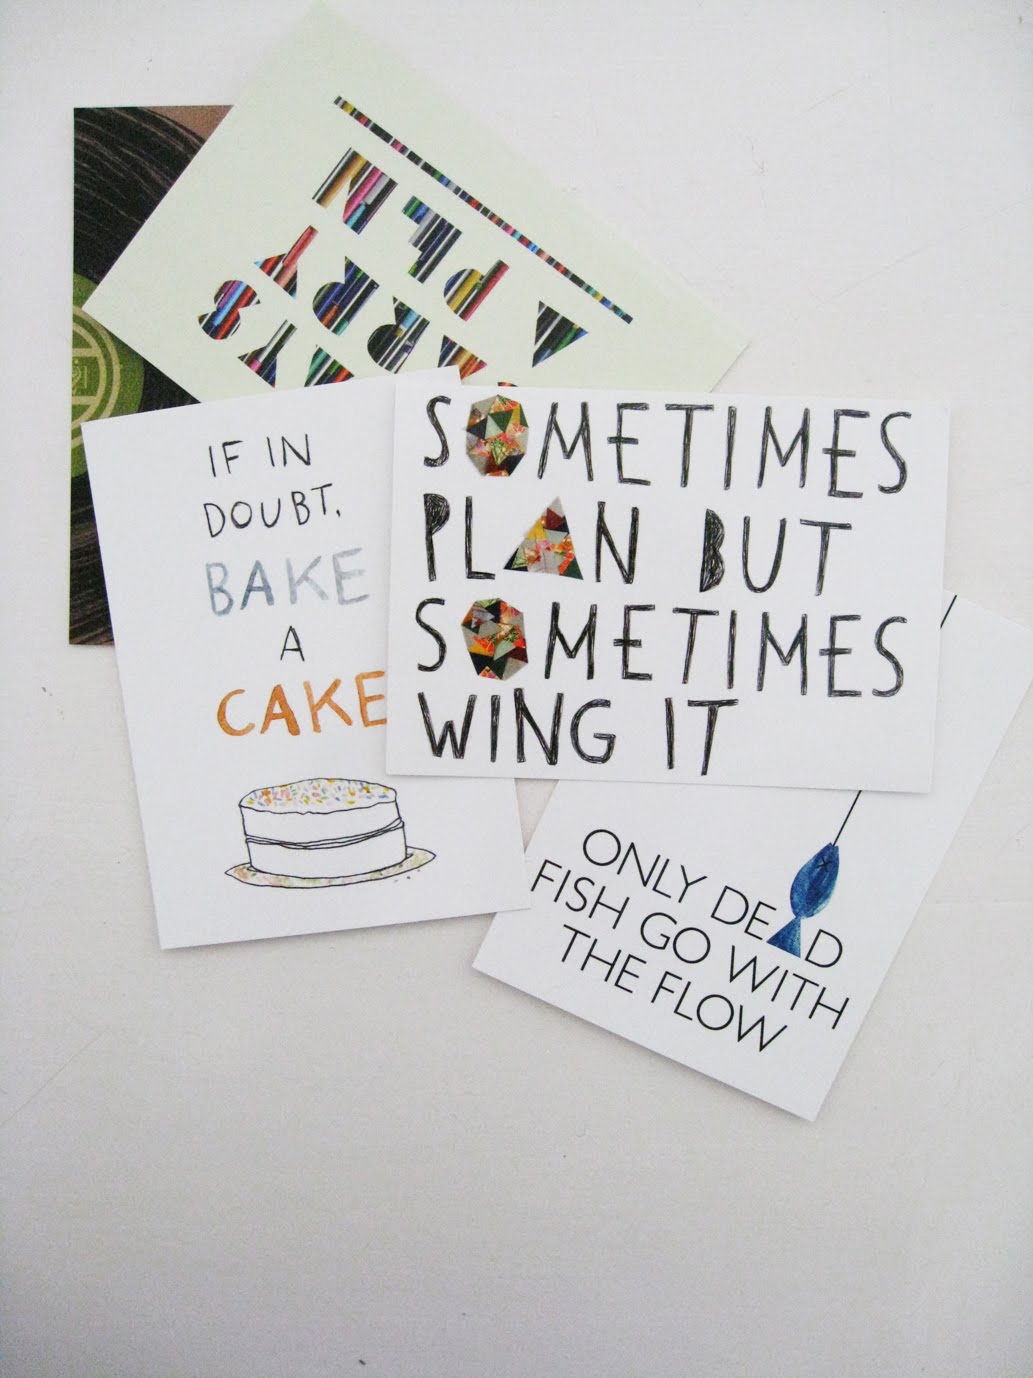 A PEN
IF IN
DOUBT,
BAKE
A
CAKE
SOMETIMES
PLAN BUT
SOMETIMES
WING IT
ONLY DEAD
FISH GO WITH
THE FLOW